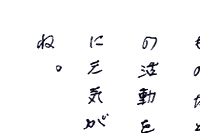 の活動を
に元気が
ね。